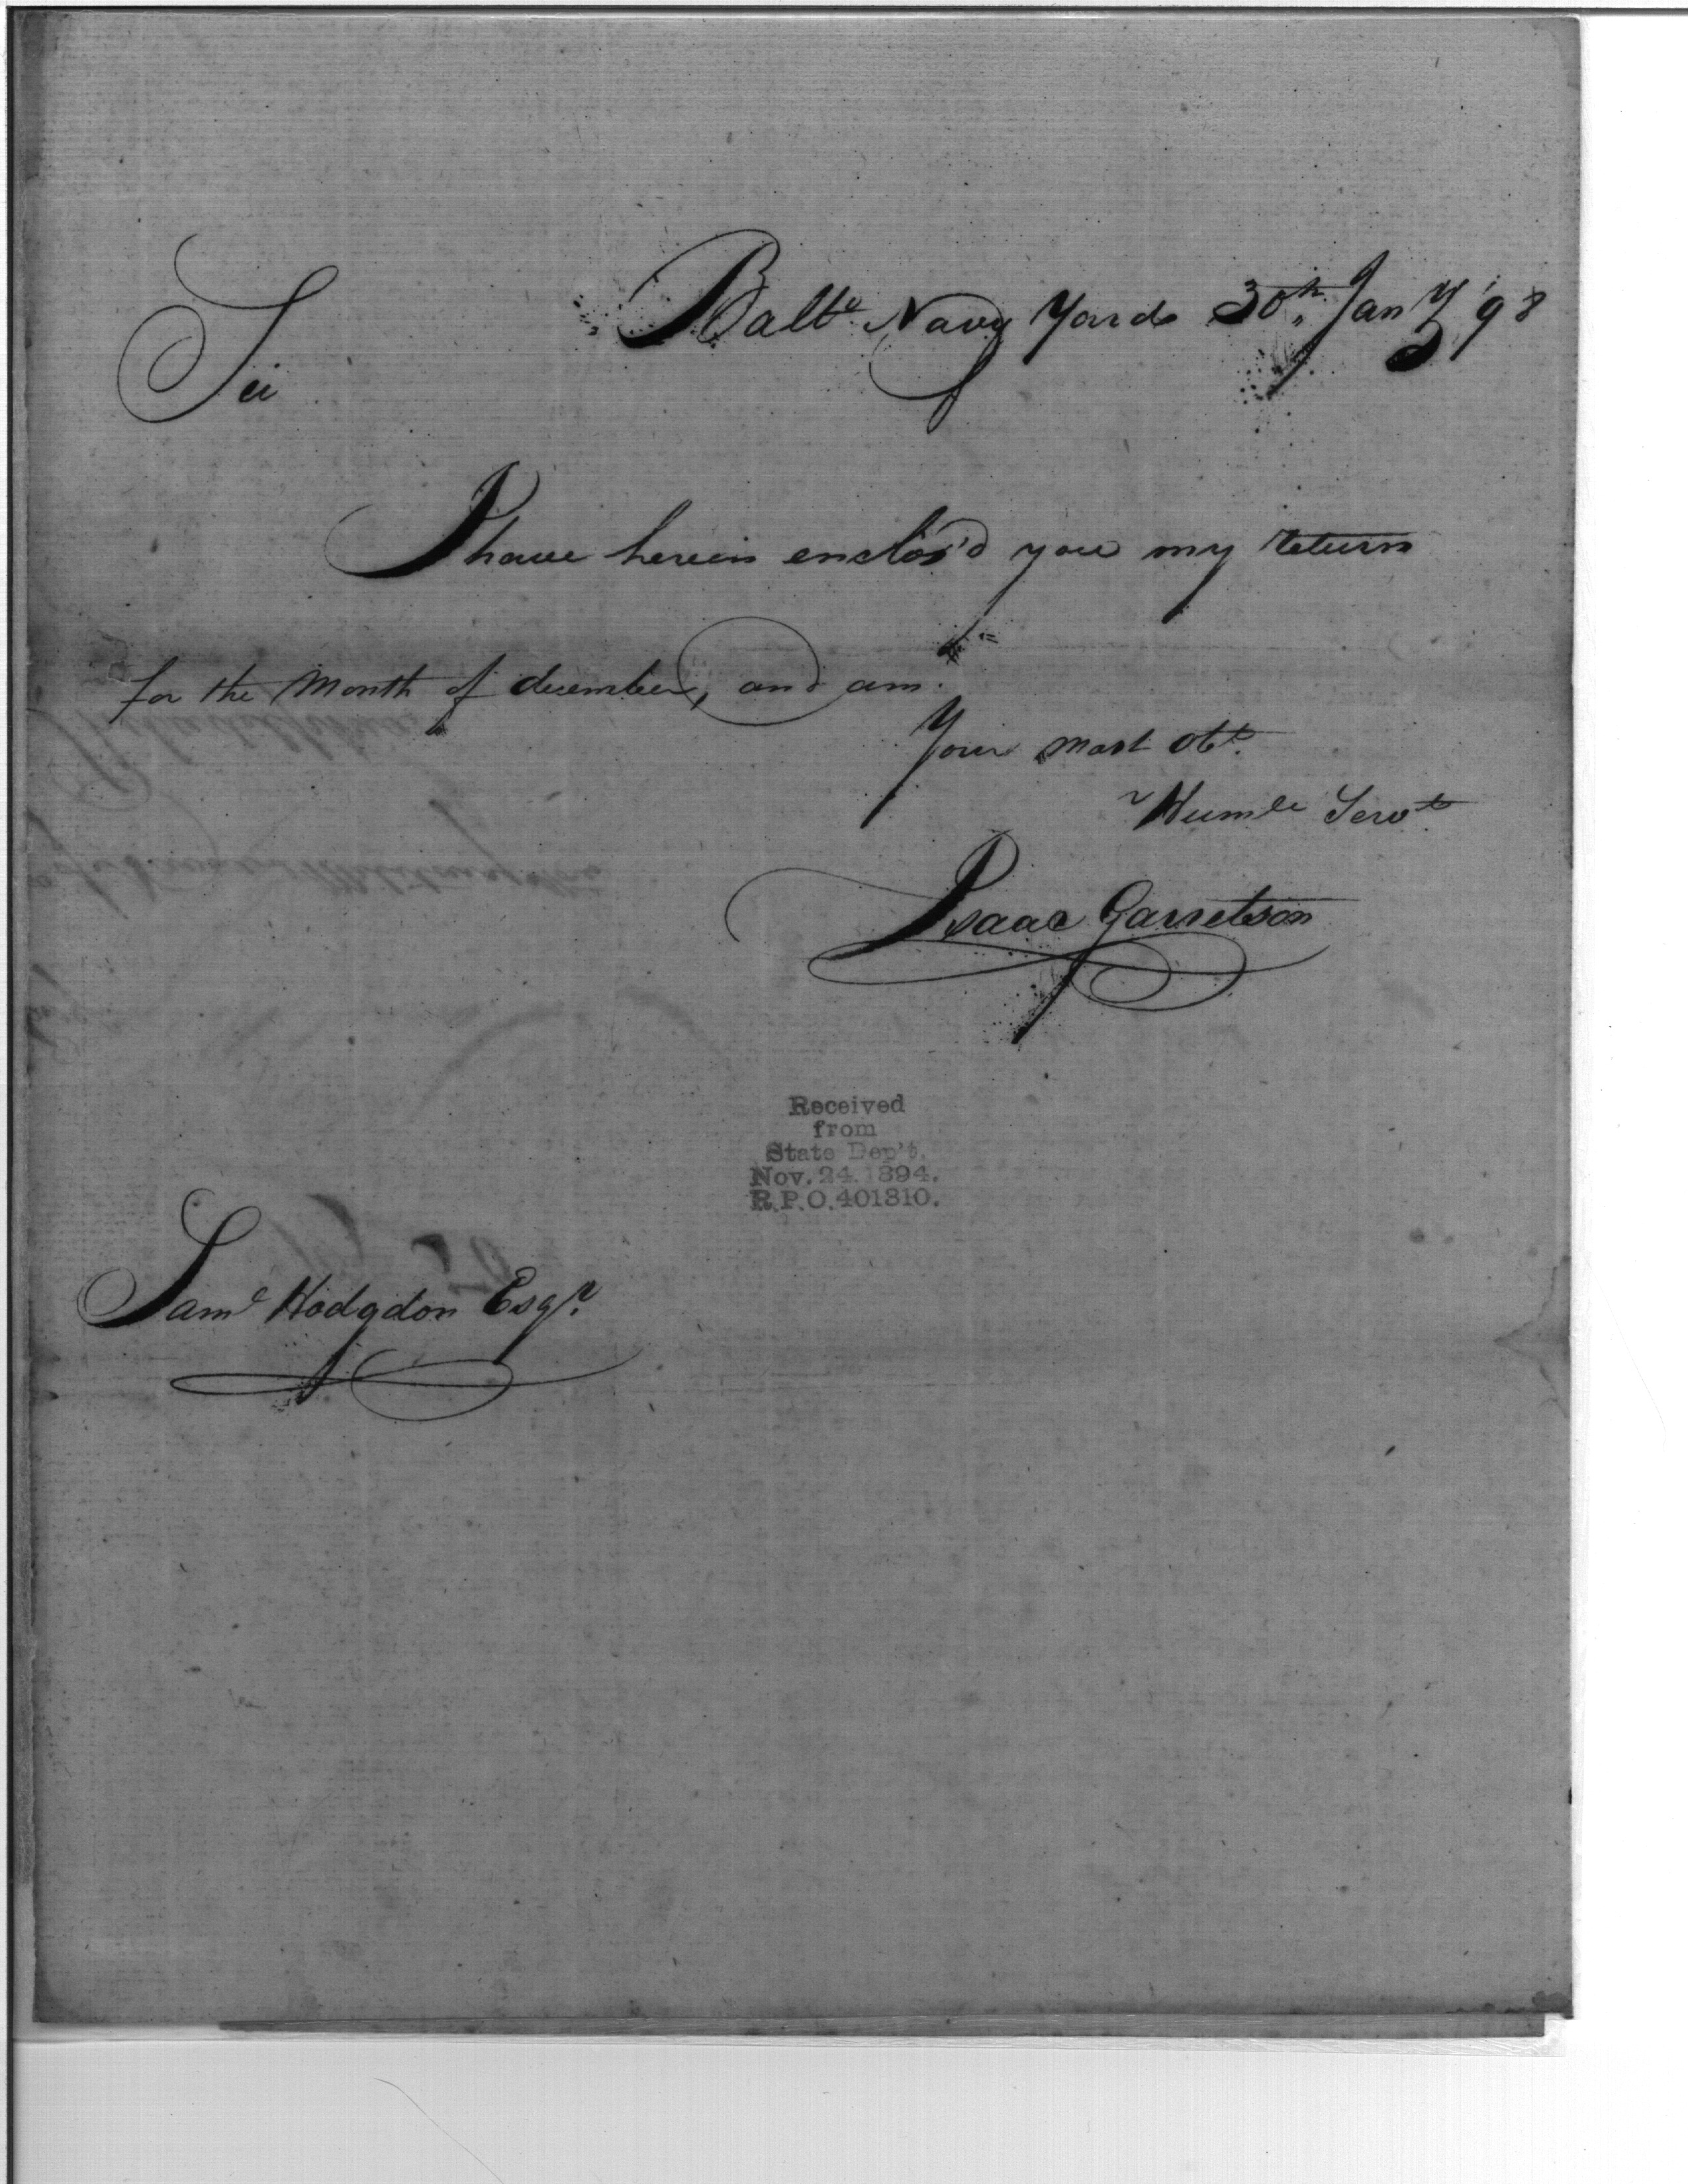 Balt.º Navy Yard 30th Jany '98
Sir
I have herein enclos'd you my return
for the Month of december, and am.
Your most Obt.
Humle Servt
Isaac Garretson
Received
from
State Dep't.
Nov. 24. 1894.
R.P.O. 401810.
Saml Hodgdon Esqr.